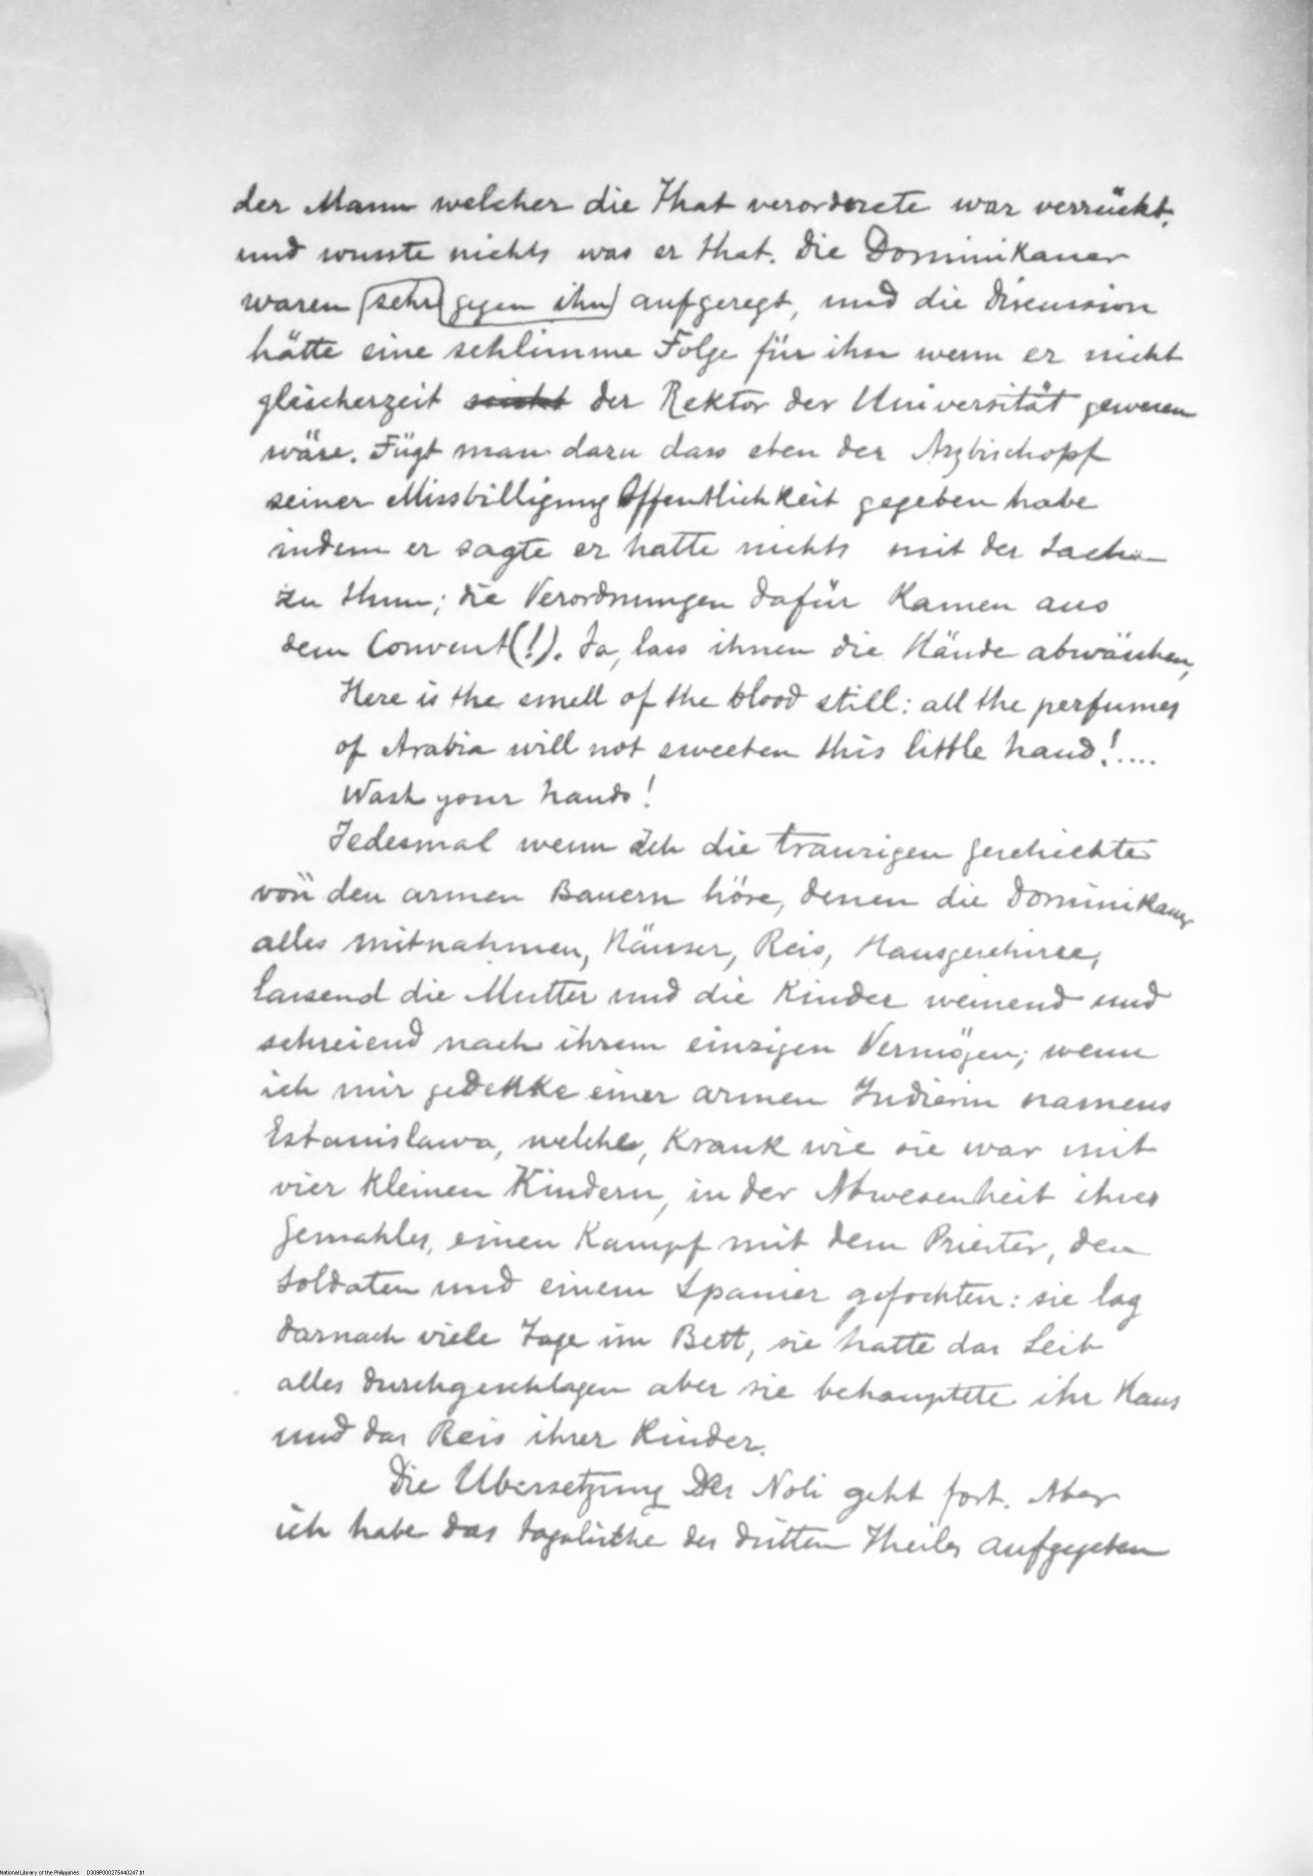 der Mann welcher die That verorderete war verrückt,
und wusste nichts was er that. Die Dominikaner
waren sehr gegen ihn aufgeregt, und die Discussion
hätte eine schlimme Folge für ihn wenn er nicht
gleicherzeit der Rektor der Universität gewesen
wäre. Fügt man dazu dass eben der Arzbischopf
seiner Missbilligung Öffentlichkeit gegeben habe
indem er sagte er hatte nichts mit der Sache
zu thun; die Verordnungen dafür kamen aus
dem Convent(!). Ja, lass ihnen die Hände abwäschen,
Here is the smell of the blood still: all the perfumes
of Arabia will not sweeten this little hand!....
Wash your hands!
Jedesmal wenn ich die traurigen Geschichte
von den armen Bauern höre, denen die Dominikaner
alles mitnahmen, Häuser, Reis, Hausgeschirre,
lassend die Mutter und die Kinder weinend und
schreiend nach ihrem einzigen Vermögen; wenn
ich mir gedenke einer armen Indierin namens
Estanislawa, welche, krank wie sie war mit
vier kleinen Kindern, in der Abwesenheit ihres
Gemahles, einen Kampf mit dem Priester, den
Soldaten und einem Spanier gefochten: sie lag
darnach viele Tage im Bett, sie hatte das Leib
alles durchgeschlagen aber sie behauptete ihr Haus
und das Reis ihrer Kinder.
Die Übersetzung des Noli geht fort. Aber
ich habe das tagalische des dritten Theiles aufgegeben
National Library of the Philippines D309P000275440247.tif